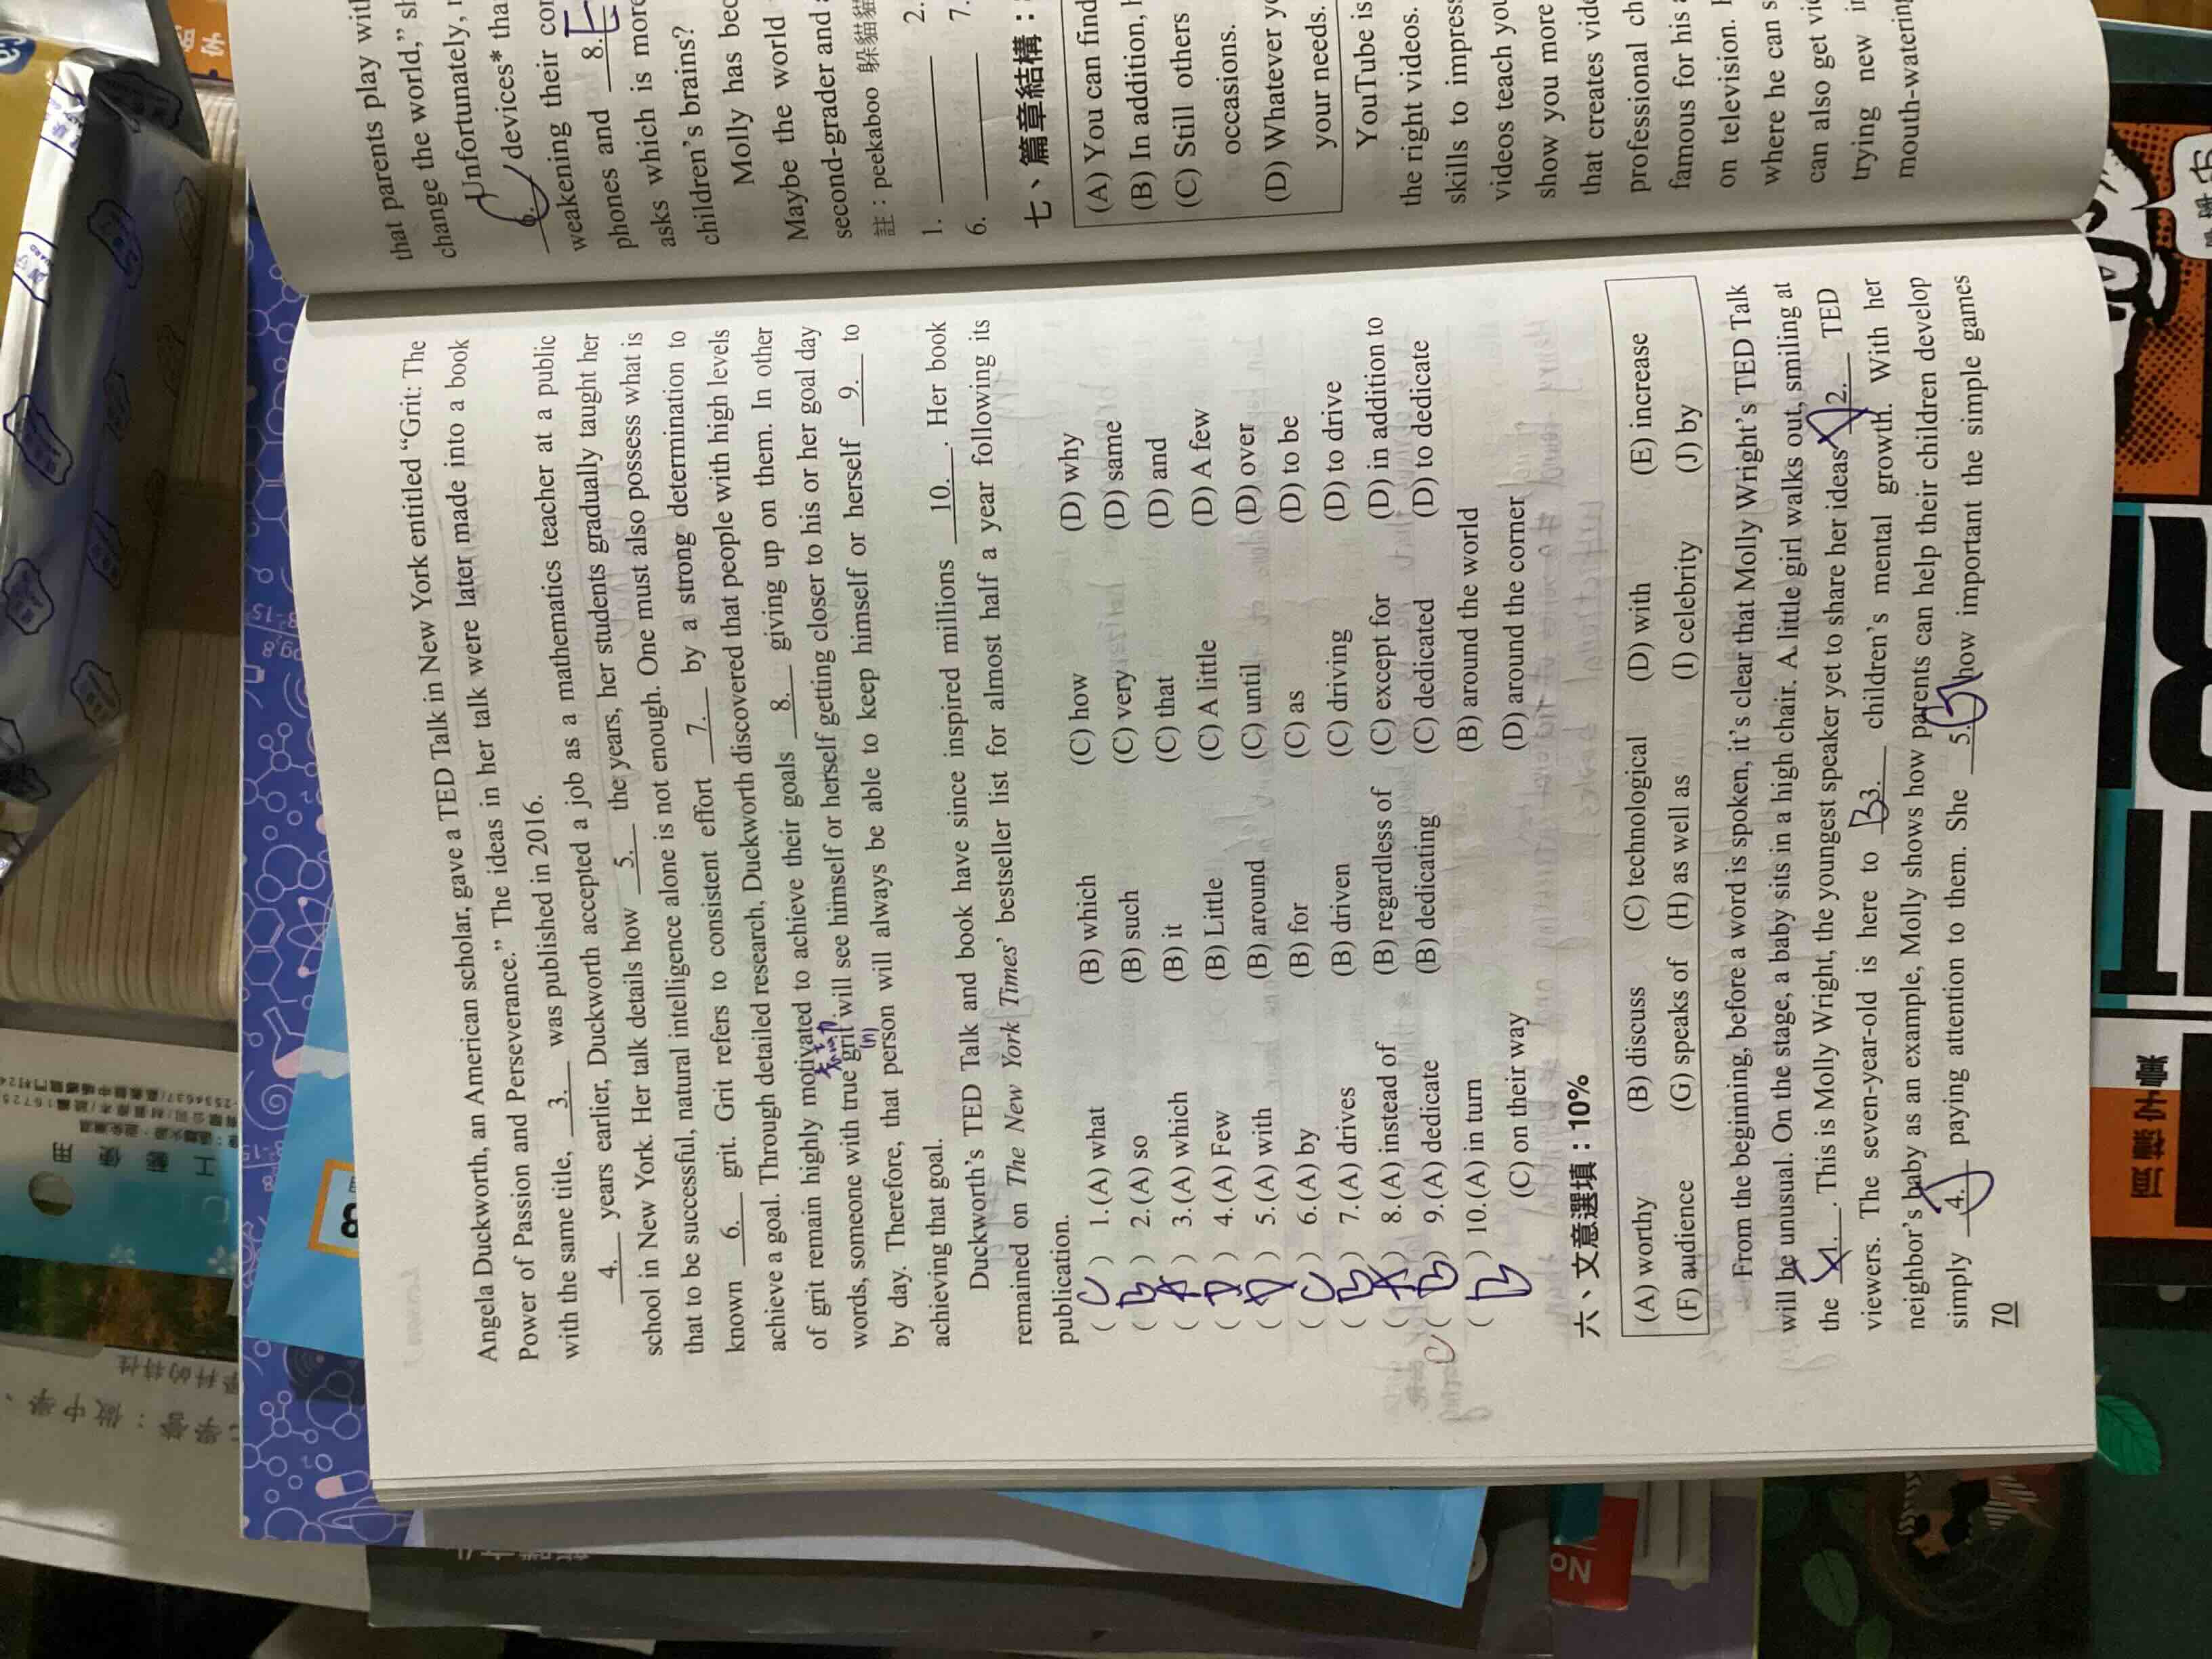 Angela Duckworth, an American scholar, gave a TED Talk in New York entitled “Grit: The
Power of Passion and Perseverance.” The ideas in her talk were later made into a book
with the same title, 3. was published in 2016.
4. years earlier, Duckworth accepted a job as a mathematics teacher at a public
school in New York. Her talk details how 5. the years, her students gradually taught her
that to be successful, natural intelligence alone is not enough. One must also possess what is
known 6. grit. Grit refers to consistent effort 7. by a strong determination to
achieve a goal. Through detailed research, Duckworth discovered that people with high levels
of grit remain highly motivated to achieve their goals 8. giving up on them. In other
words, someone with true grit will see himself or herself getting closer to his or her goal day
(n)
by day. Therefore, that person will always be able to keep himself or herself 9. to
achieving that goal.
Duckworth’s TED Talk and book have since inspired millions 10. . Her book
remained on The New York Times’ bestseller list for almost half a year following its
publication.
( C ) 1.(A) what (B) which (C) how (D) why
( B ) 2.(A) so (B) such (C) very (D) same
( A ) 3.(A) which (B) it (C) that (D) and
( D ) 4.(A) Few (B) Little (C) A little (D) A few
( D ) 5.(A) with (B) around (C) until (D) over
( C ) 6.(A) by (B) for (C) as (D) to be
( B ) 7.(A) drives (B) driven (C) driving (D) to drive
( A ) 8.(A) instead of (B) regardless of (C) except for (D) in addition to
C ( B ) 9.(A) dedicate (B) dedicating (C) dedicated (D) to dedicate
( B ) 10.(A) in turn (B) around the world
(C) on their way (D) around the corner
六、文意選填：10%
(A) worthy (B) discuss (C) technological (D) with (E) increase
(F) audience (G) speaks of (H) as well as (I) celebrity (J) by
From the beginning, before a word is spoken, it’s clear that Molly Wright’s TED Talk
will be unusual. On the stage, a baby sits in a high chair. A little girl walks out, smiling at
the 1. . This is Molly Wright, the youngest speaker yet to share her ideas 2. TED
viewers. The seven-year-old is here to B 3. children’s mental growth. With her
neighbor’s baby as an example, Molly shows how parents can help their children develop
simply 4. paying attention to them. She 5. how important the simple games
70
that parents play with
change the world,” sh
Unfortunately,
6. devices* tha
weakening their co
phones and 8.
asks which is more
children’s brains?
Molly has bec
Maybe the world
second-grader and
註：peekaboo 躲貓貓
1. 2.
6. 7.
七、篇章結構：
(A) You can find
(B) In addition,
(C) Still others
occasions.
(D) Whatever y
your needs.
YouTube is
the right videos.
skills to impress
videos teach you
show you more
that creates vide
professional ch
famous for his
on television.
where he can s
can also get vi
trying new in
mouth-watering